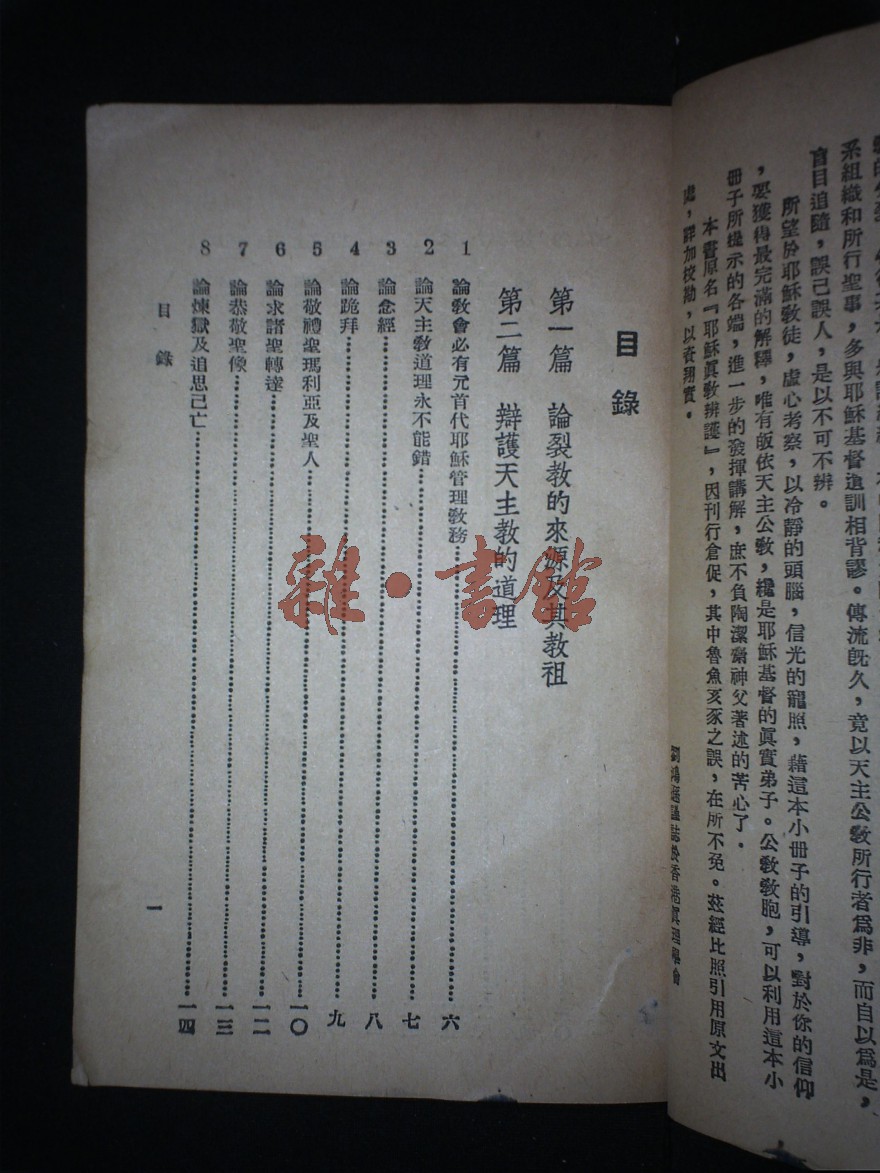 系組織和所行聖事，多與耶穌基督遺訓相背謬。傳流既久，竟以天主公教所行者爲非，而自以爲是，
盲目追隨，誤己誤人，是以不可不辨。
所望於耶穌教徒，虛心考察，以冷靜的頭腦，信光的寵照，藉這本小冊子的引導，對於你的信仰
，要獲得最完滿的解釋，唯有皈依天主公教，纔是耶穌基督的眞實弟子。公教教胞，可以利用這本小
冊子所提示的各端，進一步的發揮講解，庶不負陶潔齋神父著述的苦心了。
本書原名『耶穌眞教辨護』，因刊行倉促，其中魯魚亥豕之誤，在所不免。茲經比照引用原文出
處，詳加校勘，以資翔實。
劉鴻遜謹誌於香港眞理學會
目錄
第一篇 論裂教的來源及其教祖
第二篇 辯護天主教的道理
1 論教會必有元首代耶穌管理教務 六
2 論天主教道理永不能錯 七
3 論念經 八
4 論跪拜 九
5 論敬禮聖瑪利亞及聖人 一〇
6 論求諸聖轉達 一二
7 論恭敬聖像 一三
8 論煉獄及追思已亡 一四
目錄
一
雜·書館